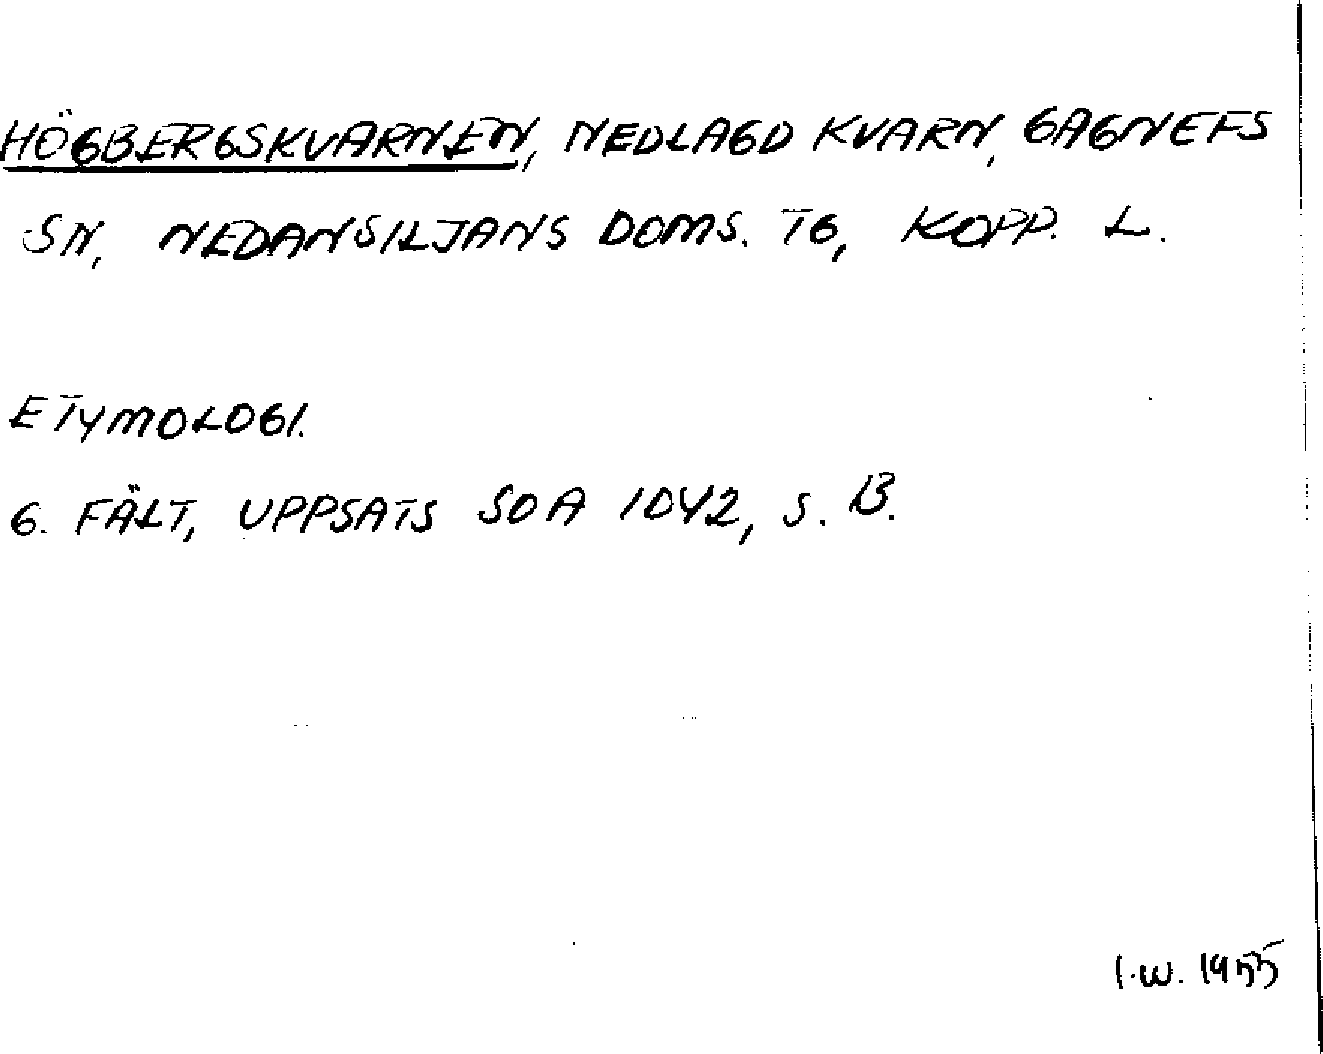 HÖGBERGSKVARNEN, NEDLAGD KVARN, GAGNEFS
SN, NEDANSILJANS DOMS. TG, KOPP. L.
ETYMOLOGI.
G. FÄLT, UPPSATS SOA 1042, S. 13.
I.W. 1955